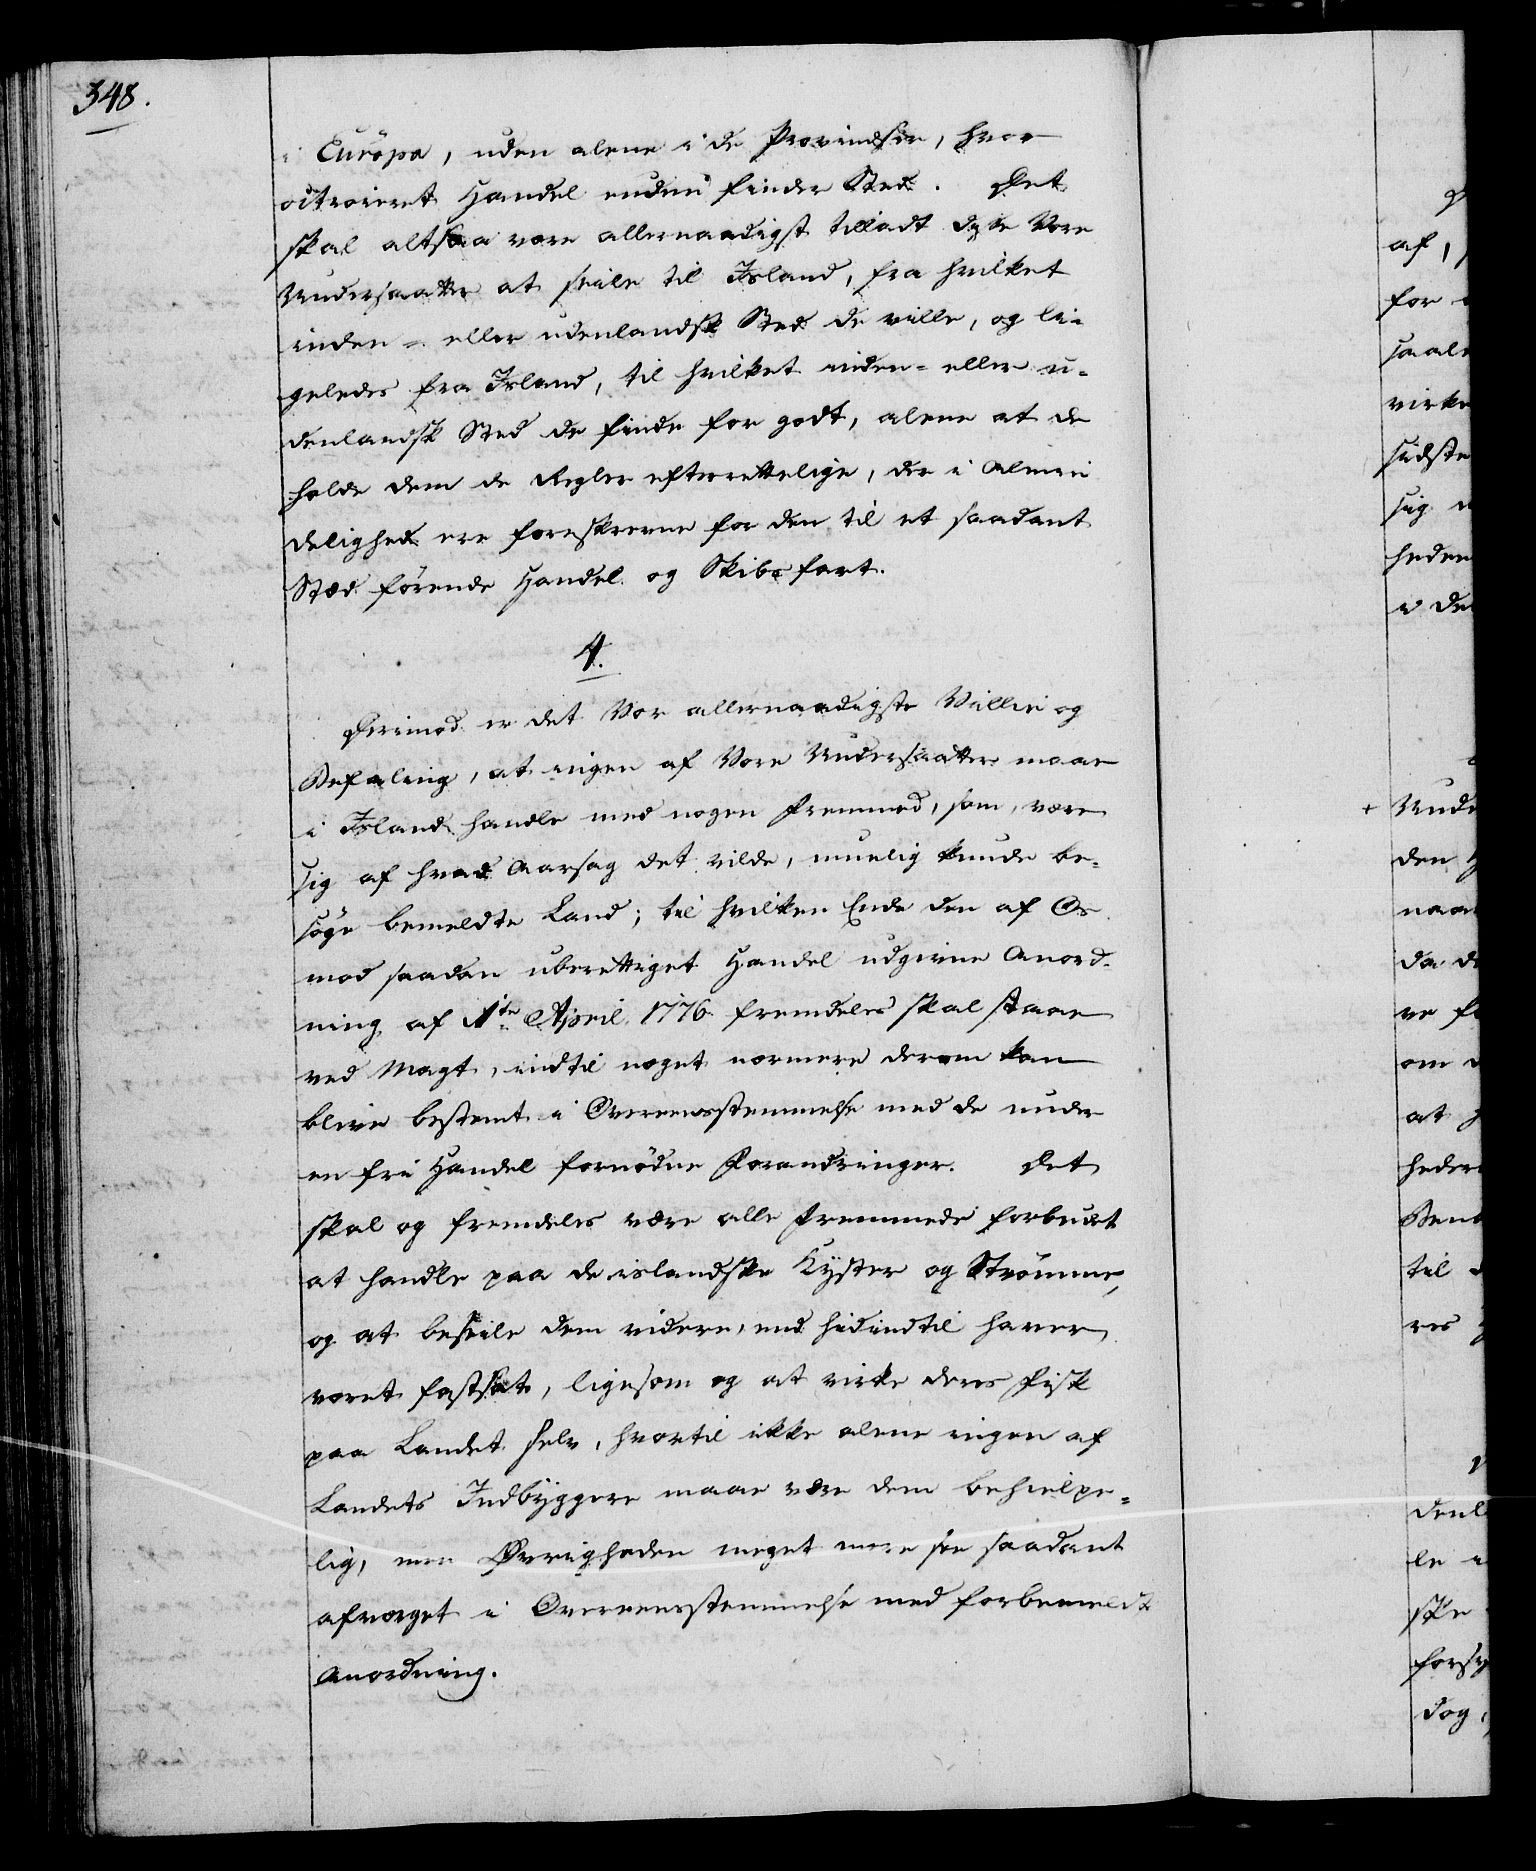 348.
i Európa, uden alene i de Provindser, hvor
octroieret Handel endnu finder Sted. Det
skal altsaa være allernaadigst tilladt disse Vore
Undersaatter at seile til Island, fra hvilket
inden- eller udenlandsk Sted de ville, og li-
geledes fra Island, til hvilket inden- eller u-
denlandsk Sted de finde for godt, alene at de
holde dem de Regler efterrettelige, der i Almin
delighed ere foreskrevne for den til et saadant
Stæd førende Handel og Skibsfart.
4.
Derimod er det Vor allernaadigste Villie og
Befaling, at ingen af Vore Undersaatter maae
i Island handle med nogen Fremmed, som, være
sig af hvad Aarsag det vilde, muelig kunde be-
søge bemeldte Land; til hvilken Ende den af Os
mod saadan uberettiget Handel udgivne Anord-
ning af 1ste April 1776 fremdeles skal staae
ved Magt, indtil noget nærmere derom kan
blive bestemt i Overeensstemmelse med de under
en fri Handel fornødne Forandringer. Det
skal og fremdeles være alle Fremmede forbudet
at handle paa de islandske Kyster og Strømme,
og at beseile dem videre, end hidindtil haver
været fastsat, ligesom og at virke deres Fisk
paa Landet selv, hvortil ikke alene ingen af
Landets Indbyggere maae være dem behielpe-
lig, men Øvrigheden meget mere see saadant
afværget i Overeensstemmelse med forbemeldte
Anordning.
af,
for
saale
virke
sidste
sig
heden
i de
+ Unde
den H
naa
da de
ve f
om
at
heder
til
res
denl
le
ske
forsy
dog